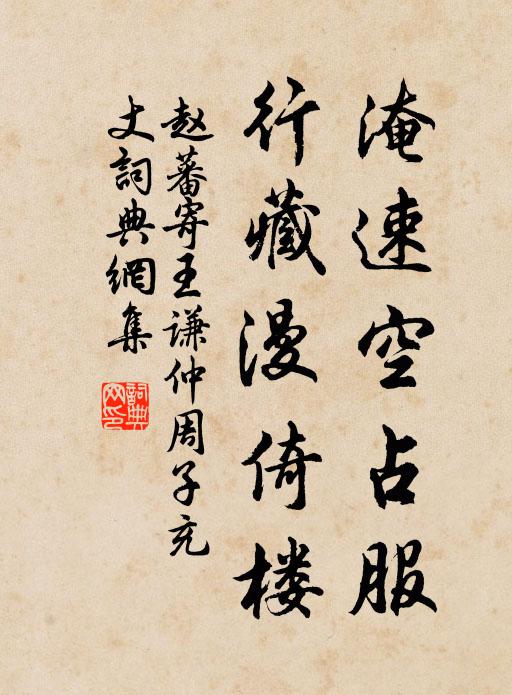 淹速空占服
行藏漫倚楼
赵蕃寄王谦仲周子充
丈詞典網集
詞典网印